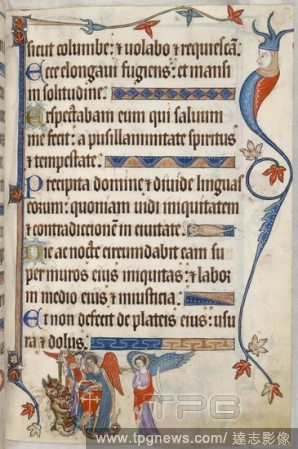 sicut columbe: ⁊ uolabo ⁊ requiescā.
Ecce elongaui fugiens: et mansi
in solitudine.
Expectabam eum qui saluum
me fecit: a pusillanimitate spiritus
⁊ tempestate.
Precipita domine ⁊ diuide linguas
eorum: quoniam uidi iniquitatem
⁊ contradictionē in ciuitate.
Die ac nocte circumdabit eam su
per muros eius iniquitas: ⁊ labor
in medio eius ⁊ iniusticia.
Et non defecit de plateis eius: usu
ra ⁊ dolus.
TPG
www.tpgnews.com/ 達志影像